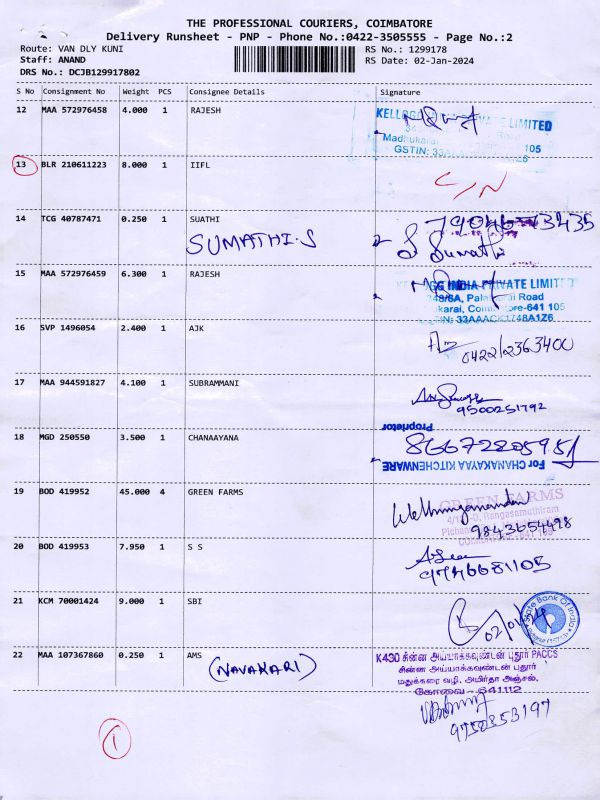 THE PROFESSIONAL COURIERS, COIMBATORE
Delivery Runsheet - PNP - Phone No.:0422-3505555 - Page No.:2
Route: VAN DLY KUNI RS No.: 1299178
Staff: ANAND RS Date: 02-Jan-2024
DRS No.: DCJB129917802
S No Consignment No Weight PCS Consignee Details Signature
12 MAA 572976458 4.000 1 RAJESH
PRIVATE LIMITED
Road
Madhukarai, 105
GSTIN:
13 BLR 210611223 8.000 1 IIFL
14 TCG 40787471 0.250 1 SUATHI
SUMATHI.S
S. Sumathi
15 MAA 572976459 6.300 1 RAJESH
INDIA PRIVATE LIMITED
Road
-641 105
33AAACK1748A1Z6
16 SVP 1496054 2.400 1 AJK
0422/2363400
17 MAA 944591827 4.100 1 SUBRAMMANI
9500251792
Proprietor
18 MGD 250550 3.500 1 CHANAAYANA
For CHANAKAYAA KITCHENWARE
19 BOD 419952 45.000 4 GREEN FARMS
GREEN FARMS
9843654498
20 BOD 419953 7.950 1 S S
9746681105
21 KCM 70001424 9.000 1 SBI
State Bank Of India
02/01/24
22 MAA 107367860 0.250 1 AMS
(NAVAKARI)
K430 சின்ன அய்யாக்கவுண்டன் புதூர் PACCS
சின்ன அய்யாக்கவுண்டன் புதூர்
மதுக்கரை வழி, அமிர்தா அஞ்சல்,
கோவை - 641112
9750353197
1